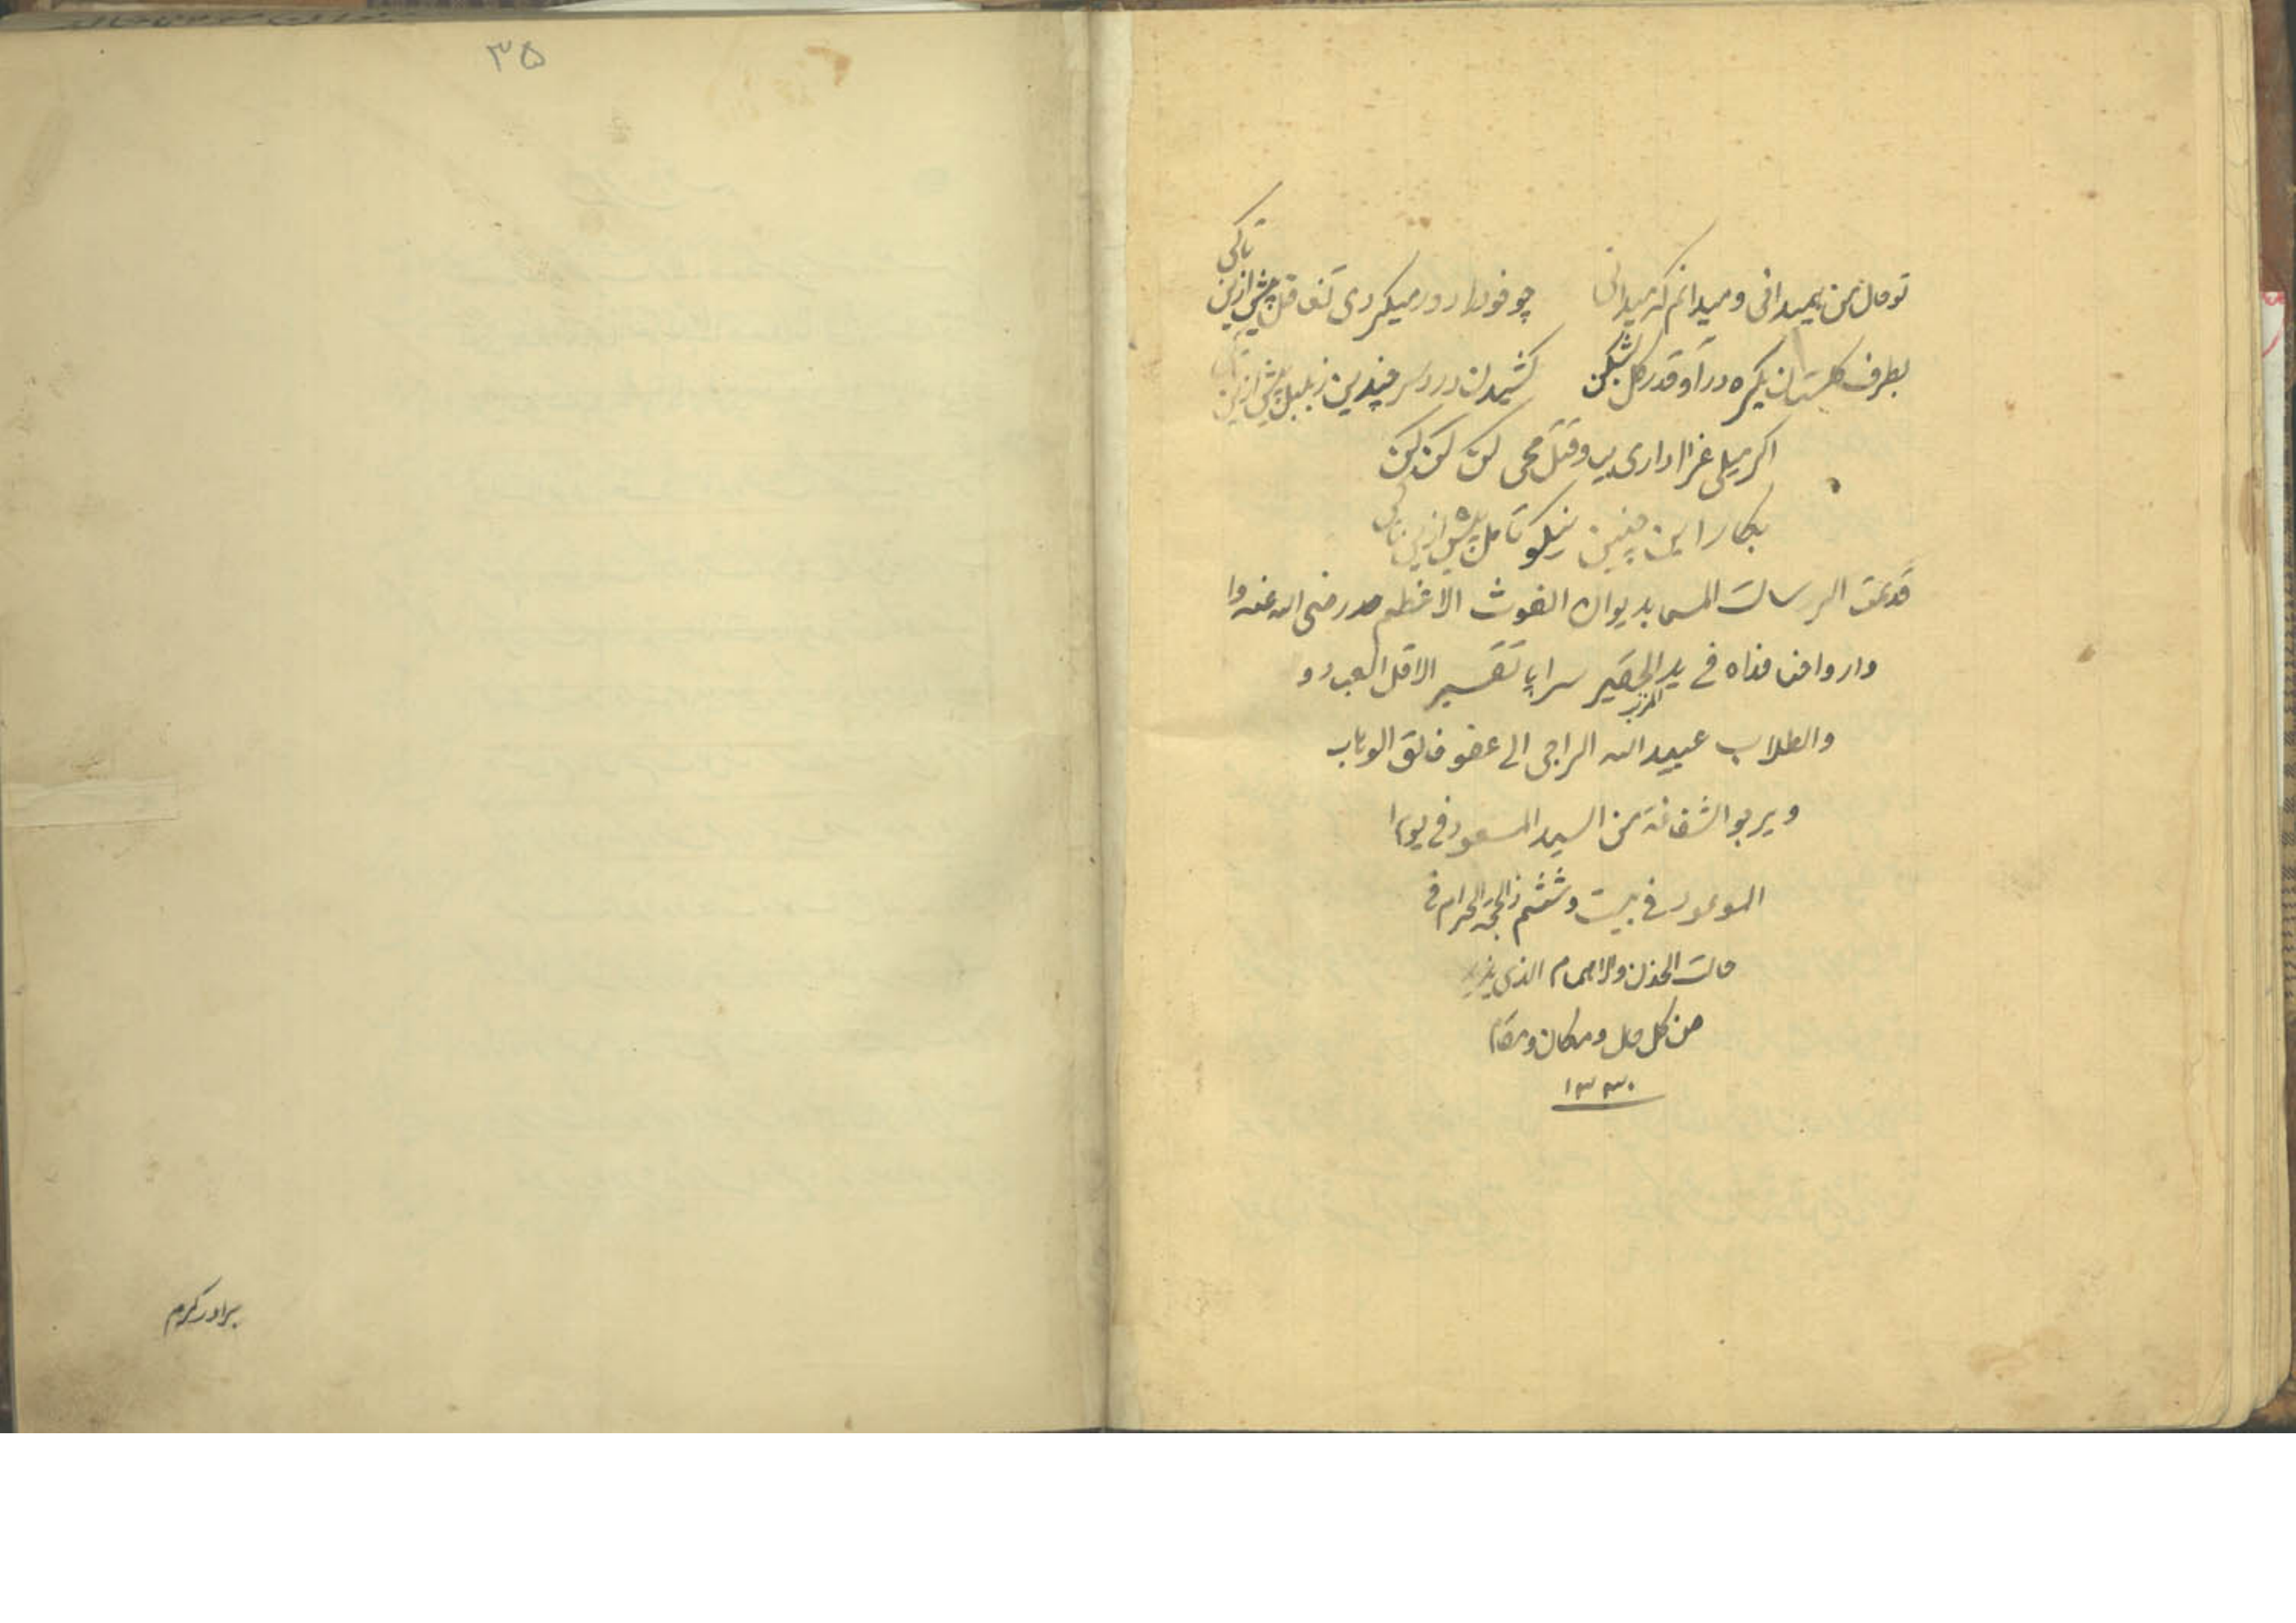 تو حال من نمیدانی و میدانم که میدانی چو خود را دور میکردی تغافل پیش ازین تاکی
بطرف گلستان یکره درآ و قدر گل بشکن کشیدن درد سر چندین ز بلبل پیش ازین تاکی
اگر میل غزا داری بیا و قتل محی کن کن کن
بکار این چنین نیکو تامل پیش ازین تاکی
قد تمت الرسالت المسمی بدیوان الغوث الاعظم رضی الله عنه وا
وارواحنا فداه فی ید الحقیر سراپا تقصیر الاقل العباد و
والطلاب عبید الله الراجی الی عفو خالق الوهاب
ویرجوا الشفاعة من السید المسعود فی یوم ا
الموعود فی بیست و ششم ذالحجة الحرام فی
حالت الحزن والاهمام الذی
من کل حال و مکان و مقام
۱۳۳۰
۳۵
برادر کرم